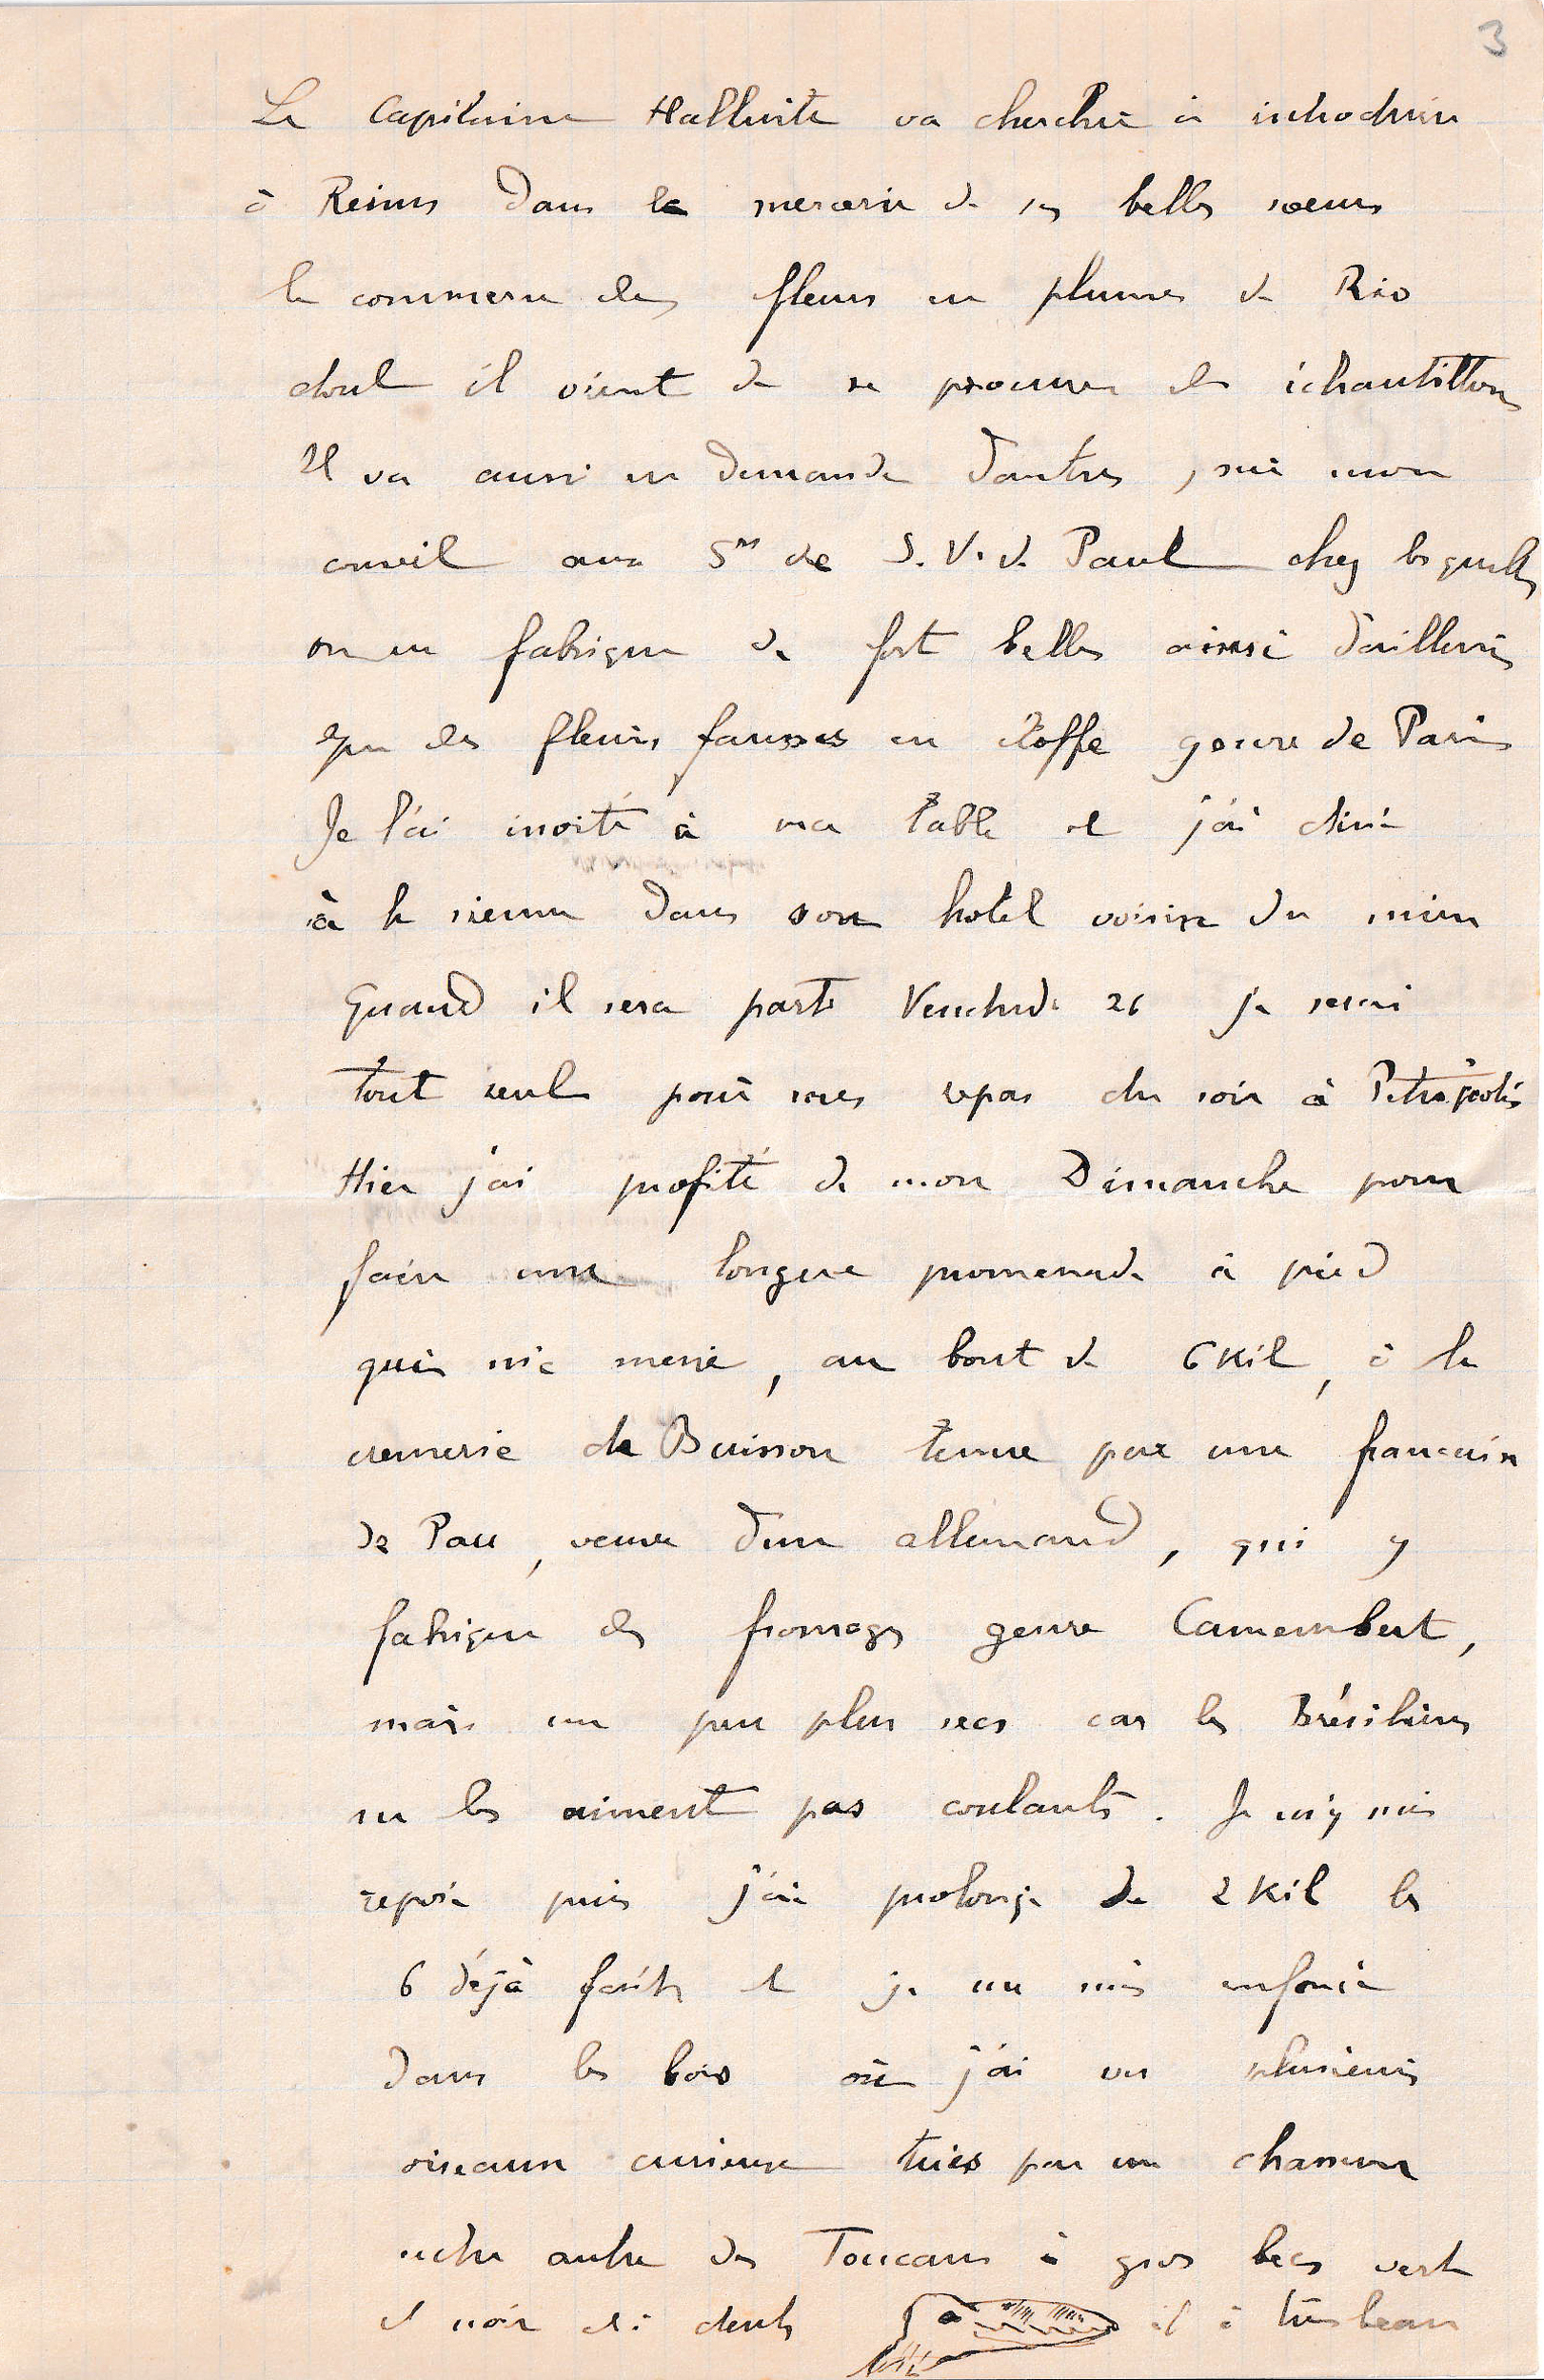 3
Le Capitaine Halluite va chercher à introduire
à Reims dans la mercerie de ses belles soeurs
le commerce des fleurs en plumes de Rio
dont il vient de se procurer des échantillons
Il va aussi en demander d'autres, sur mon
conseil aux Srs de S. V. d. Paul chez lesquelles
on en fabrique de fort belles ainsi d'ailleurs
que des fleurs fausses en étoffe genre de Paris
Je l'ai invité à ma table et j'ai diné
à la sienne dans son hotel voisin du mien
Quand il sera parti Vendredi 26 je serai
tout seul pour mes repas du soir à Pétropolis
Hier j'ai profité de mon Dimanche pour
faire une longue promenade à pied
qui m'a mené, au bout de 6 Kil, à la
cremerie de Buisson tenue par une francaise
de Pau, veuve d'un allemand, qui y
fabrique des fromages genre Camembert,
mais un peu plus secs car les Brésiliens
ne les aiment pas coulants. Je m'y suis
reposé puis j'ai prolongé de 2 Kil les
6 déjà faits et je me suis enfoncé
dans les bois où j'ai vu plusieurs
oiseaux curieux tués par un chasseur
entre autre des Toucans à gros becs verts
et noir et à dents il a très beau